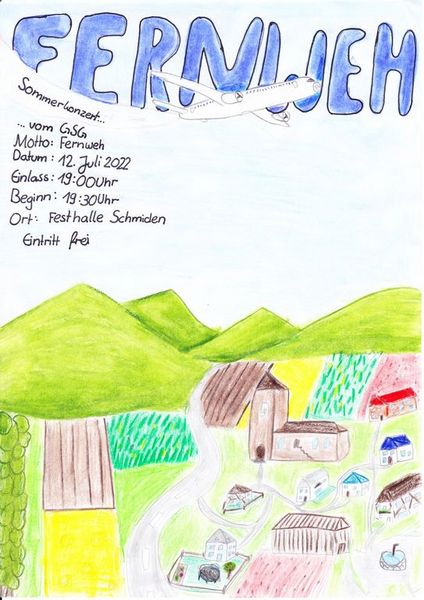 FERNWEH
Sommerkonzert...
... vom GSG
Motto: Fernweh
Datum: 12. Juli 2022
Einlass: 19:00 Uhr
Beginn: 19:30 Uhr
Ort: Festhalle Schmiden
Eintritt frei